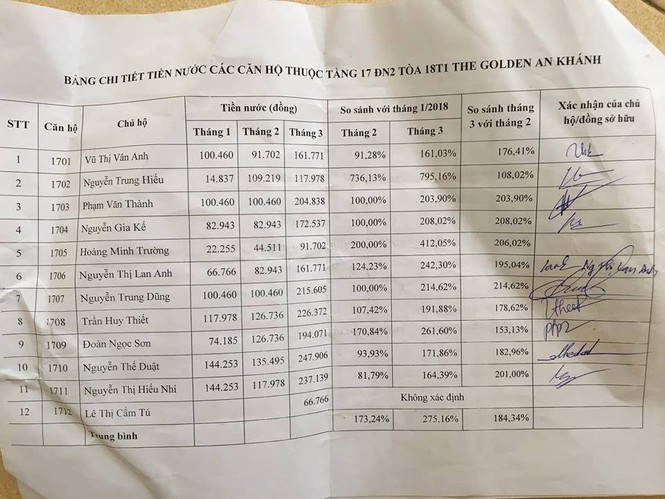 BẢNG CHI TIẾT TIỀN NƯỚC CÁC CĂN HỘ THUỘC TẦNG 17 ĐN2 TÒA 18T1 THE GOLDEN AN KHÁNH
STT Căn hộ Chủ hộ Tiền nước (đồng) So sánh với tháng 1/2018 So sánh tháng 3 với tháng 2 Xác nhận của chủ hộ/đồng sở hữu
Tháng 1 Tháng 2 Tháng 3 Tháng 2 Tháng 3
1 1701 Vũ Thị Vân Anh 100.460 91.702 161.771 91,28% 161,03% 176,41%
2 1702 Nguyễn Trung Hiếu 14.837 109.219 117.978 736,13% 795,16% 108,02%
3 1703 Phạm Văn Thành 100.460 100.460 204.838 100,00% 203,90% 203,90%
4 1704 Nguyễn Gia Kế 82.943 82.943 172.537 100,00% 208,02% 208,02%
5 1705 Hoàng Minh Trường 22.255 44.511 91.702 200,00% 412,05% 206,02%
6 1706 Nguyễn Thị Lan Anh 66.766 82.943 161.771 124,23% 242,30% 195,04%
7 1707 Nguyễn Trung Dũng 100.460 100.460 215.605 100,00% 214,62% 214,62%
8 1708 Trần Huy Thiết 117.978 126.736 226.372 107,42% 191,88% 178,62%
9 1709 Đoàn Ngọc Sơn 74.185 126.736 194.071 170,84% 261,60% 153,13%
10 1710 Nguyễn Thế Duật 144.253 135.495 247.906 93,93% 171,86% 182,96%
11 1711 Nguyễn Thị Hiếu Nhi 144.253 117.978 237.139 81,79% 164,39% 201,00%
12 1712 Lê Thị Cẩm Tú 66.766 Không xác định
Trung bình 173,24% 275,16% 184,34%